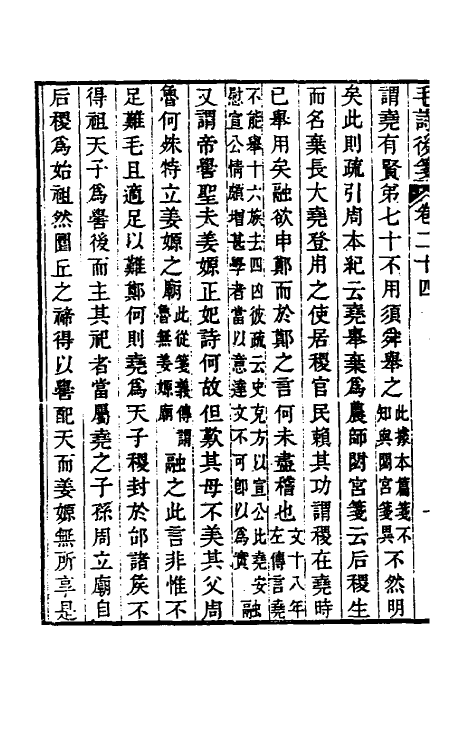 毛詩後箋 卷二十四
謂堯有賢弟七十不用須舜舉之此據本篇箋不知與閟宮箋異不然明
矣此則疏引周本紀云堯舉棄爲農師閟宮箋云后稷生
而名棄長大堯登用之使居稷官民賴其功謂稷在堯時
已舉用矣融欲申鄭而於鄭之言何未盡稽也文十八年左傳言堯
不能舉十六族去四凶彼疏云史克方以宣公比堯安慰宣公情頗增甚學者當以意達文不可卽以爲實融
又謂帝嚳聖夫姜嫄正妃詩何故但歎其母不美其父周
魯何殊特立姜嫄之廟此從箋義傳謂魯無姜嫄廟融之此言非惟不
足難毛且適足以難鄭何則堯爲天子稷封於邰諸矦不
得祖天子爲嚳後而主其祀者當屬堯之子孫周立廟自
后稷爲始祖然圜丘之禘得以嚳配天而姜嫄無所享是